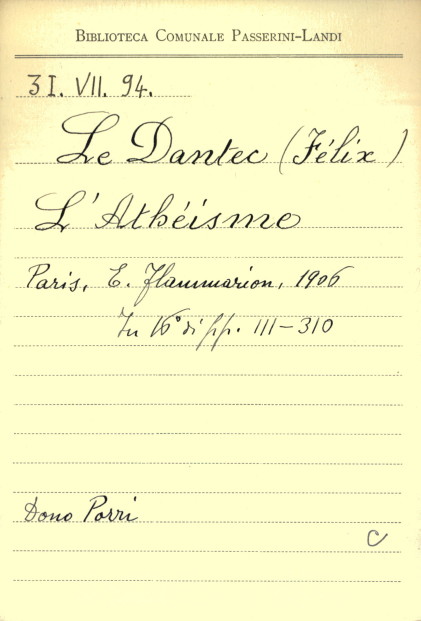 BIBLIOTECA COMUNALE PASSERINI-LANDI
3I. VII. 94.
Le Dantec (Félix)
L'Athéisme
Paris, E. Flammarion, 1906
In 16° di pp. III-310
Dono Porri
C